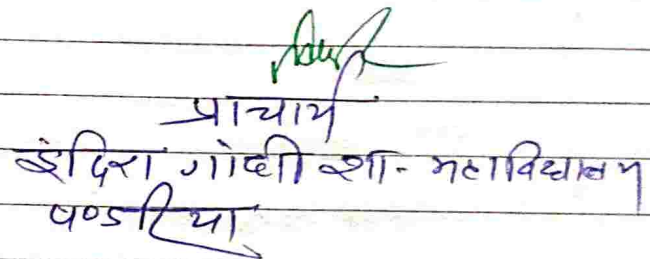 प्राचार्य
इंदिरा गांधी शा- महाविद्यालय
पण्डरिया